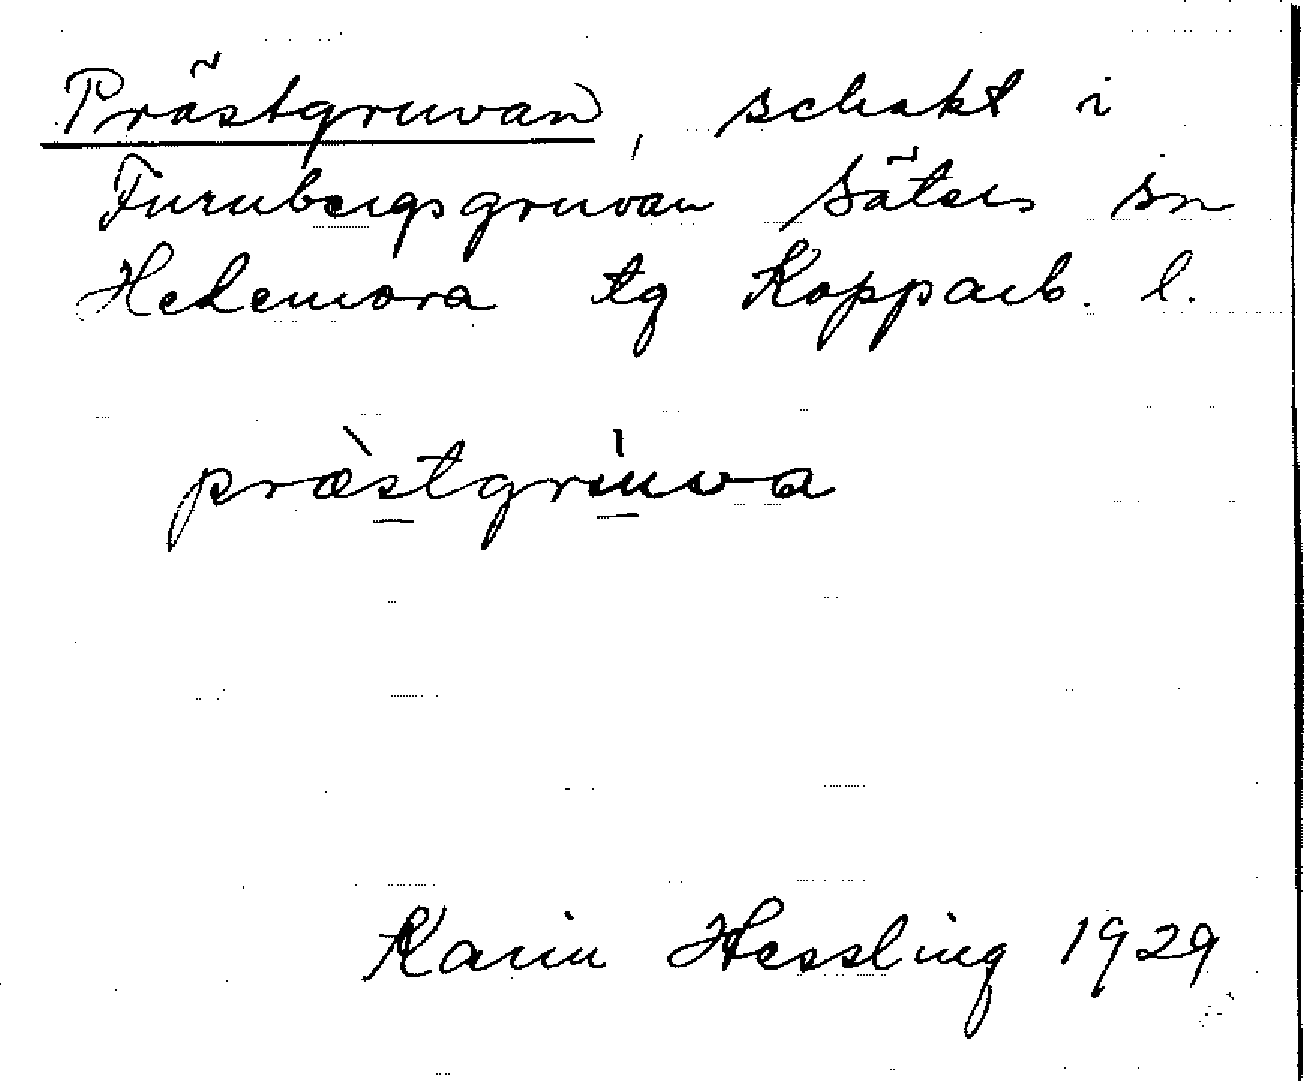 Prästgruvan, schakt i
Furubergsgruvan Säters sn
Hedemora tg Kopparb. l.
præ̀stgrùwa
Karin Hessling 1929